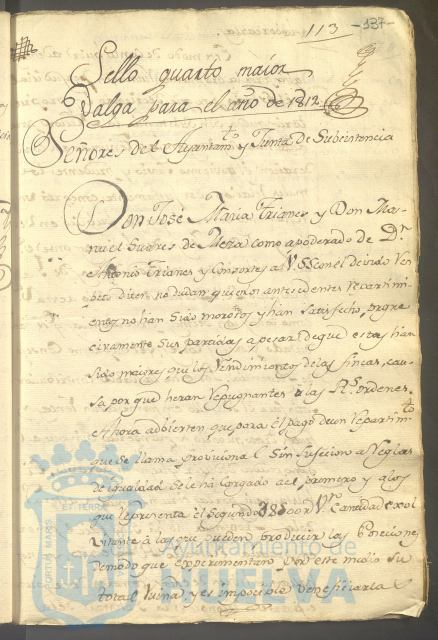 113 -137-
Sello quarto maior
Valga para el año de 1812
Señores del Ayuntamto y Junta de Subcistencia
Don José Maria Trianes y Don Ma-
nuel Suares de Meza como apoderado de Dn
Antonio Trianes y Consortes a V. SS con el devido Res
peto dicen no dudan qe en los antecedentes repartimi
entos no han sido morosos y han satisfecho, progre
civamente sus partidas, a pesar de que estas han
sido maiores qe los rendimientos de las fincas, cau-
sa por que heran repugnantes a las Rs ordenes.
Ahora advierten que para el pago de un repartimto
que se llama provisional sin sugecion a Reglas
de igualdad se le ha cargado a el primero y a los
que representa el Segundo 3800 Rs Vn Cantidad exol
vitante a las que pueden producir las Poseciones,
de modo que experimentan por este medio su
total ruina, y es imposible beneficiarla
PORTUS MARIS ET TERRE
Ayuntamiento de
HUELVA